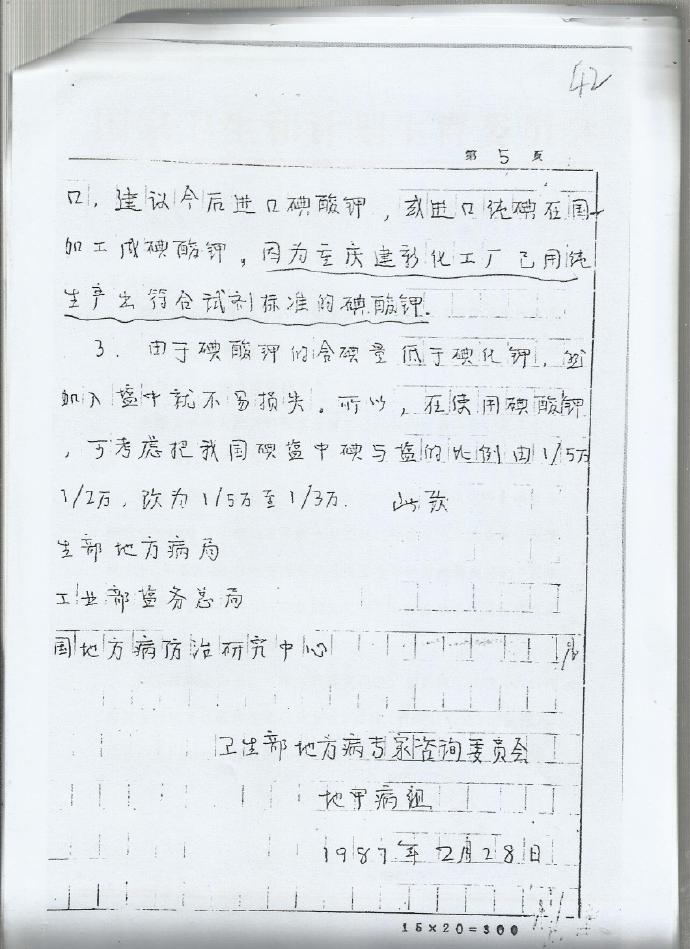 42
第 5 页
口，建议今后进口碘酸钾，或进口纯碘在国
加工成碘酸钾。因为重庆建彰化工厂已用纯
生产出符合试剂标准的碘酸钾.
3. 由于碘酸钾的含碘量低于碘化钾，
加入盐中就不易损失。所以，在使用碘酸钾
，可考虑把我国碘盐中碘与盐的比例由1/5万
1/2万，改为1/5万至1/3万. 此致
生部地方病局
工业部盐务总局
国地方病防治研究中心
卫生部地方病专家咨询委员会
地甲病组
1987年2月28日
15×20=300